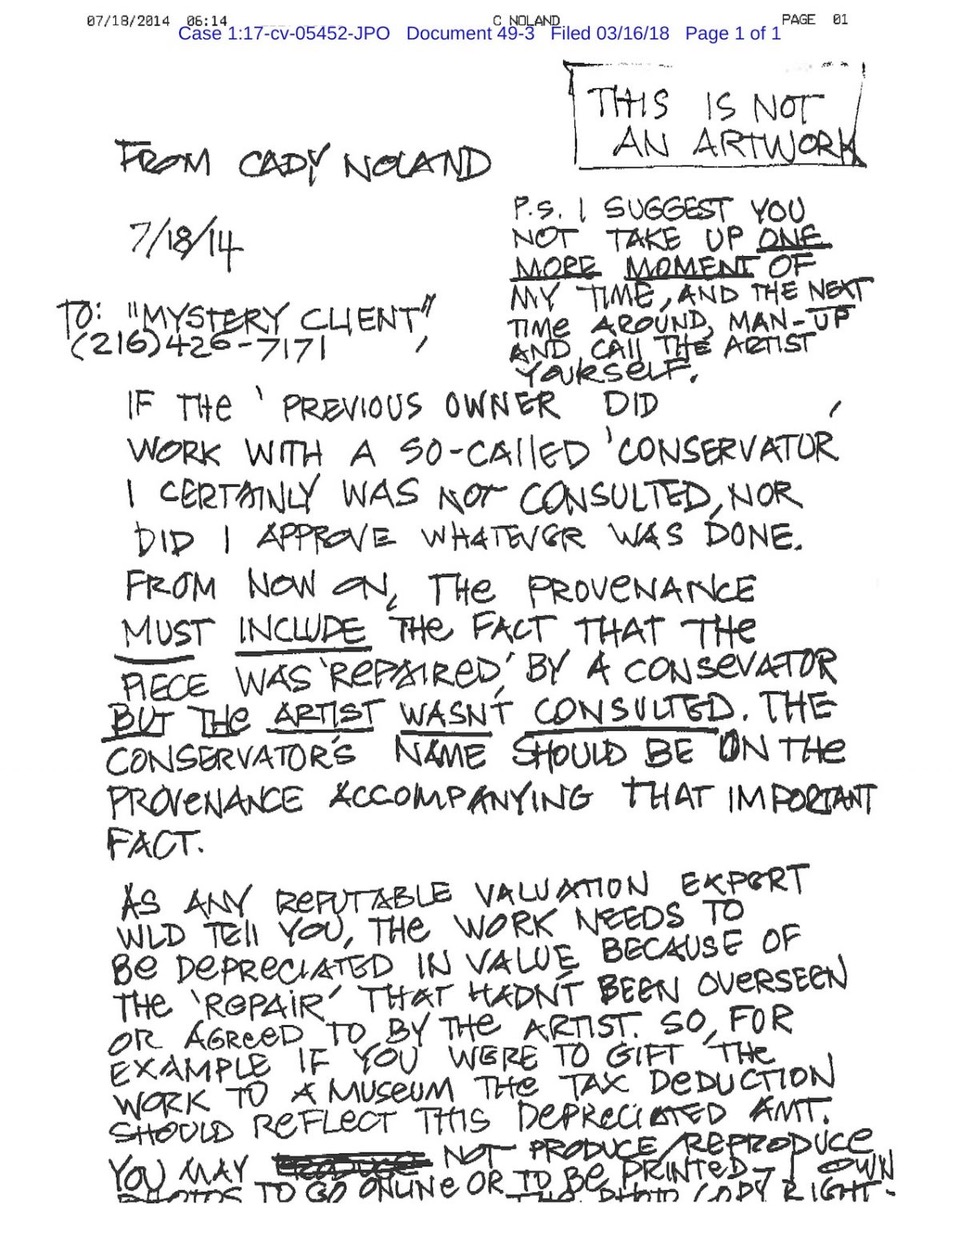 07/18/2014 06:14 C NOLAND PAGE 01
Case 1:17-cv-05452-JPO Document 49-3 Filed 03/16/18 Page 1 of 1
THIS IS NOT
AN ARTWORK
FROM CADY NOLAND
7/18/14
TO: "MYSTERY CLIENT",
(216)426-7171
P.S. I SUGGEST YOU
NOT TAKE UP ONE
MORE MOMENT OF
MY TIME, AND THE NEXT
TIME AROUND, MAN-UP
AND CALL THE ARTIST
YOURSELF.
IF THE ' PREVIOUS OWNER DID
WORK WITH A SO-CALLED 'CONSERVATOR'
I CERTAINLY WAS NOT CONSULTED, NOR
DID I APPROVE WHATEVER WAS DONE.
FROM NOW ON, THE PROVENANCE
MUST INCLUDE THE FACT THAT THE
PIECE WAS 'REPAIRED' BY A CONSEVATOR
BUT THE ARTIST WASN'T CONSULTED. THE
CONSERVATOR'S NAME SHOULD BE ON THE
PROVENANCE ACCOMPANYING THAT IMPORTANT
FACT.
AS ANY REPUTABLE VALUATION EXPERT
WLD TELL YOU, THE WORK NEEDS TO
BE DEPRECIATED IN VALUE BECAUSE OF
THE 'REPAIR' THAT HADN'T BEEN OVERSEEN
OR AGREED TO BY THE ARTIST. SO, FOR
EXAMPLE IF YOU WERE TO GIFT THE
WORK TO A MUSEUM THE TAX DEDUCTION
SHOULD REFLECT THIS DEPRECIATED AMT.
YOU MAY NOT PRODUCE/REPRODUCE
PHOTOS TO GO ONLINE OR TO BE PRINTED - I OWN
THE PHOTO COPYRIGHT.